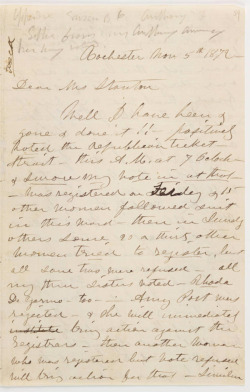 Rochester Nov 5th 1872
Dear Mrs Stanton
Well I have been &
gone & done it!! positively
voted the Republican ticket
strait this A.M. at 7 Oclock
& swore my vote in at that
was registered on Friday & 15
other women followed suit
in this ward then in Sundry
others Some 20 or thirty other
women tried to register, but
all save two were refused all
my three sisters voted Rhoda
De Garmo too Amy Post was
rejected & she will immediately
bring action against the
registrars then another woman
who was registered but vote refused
will bring action for that Similar